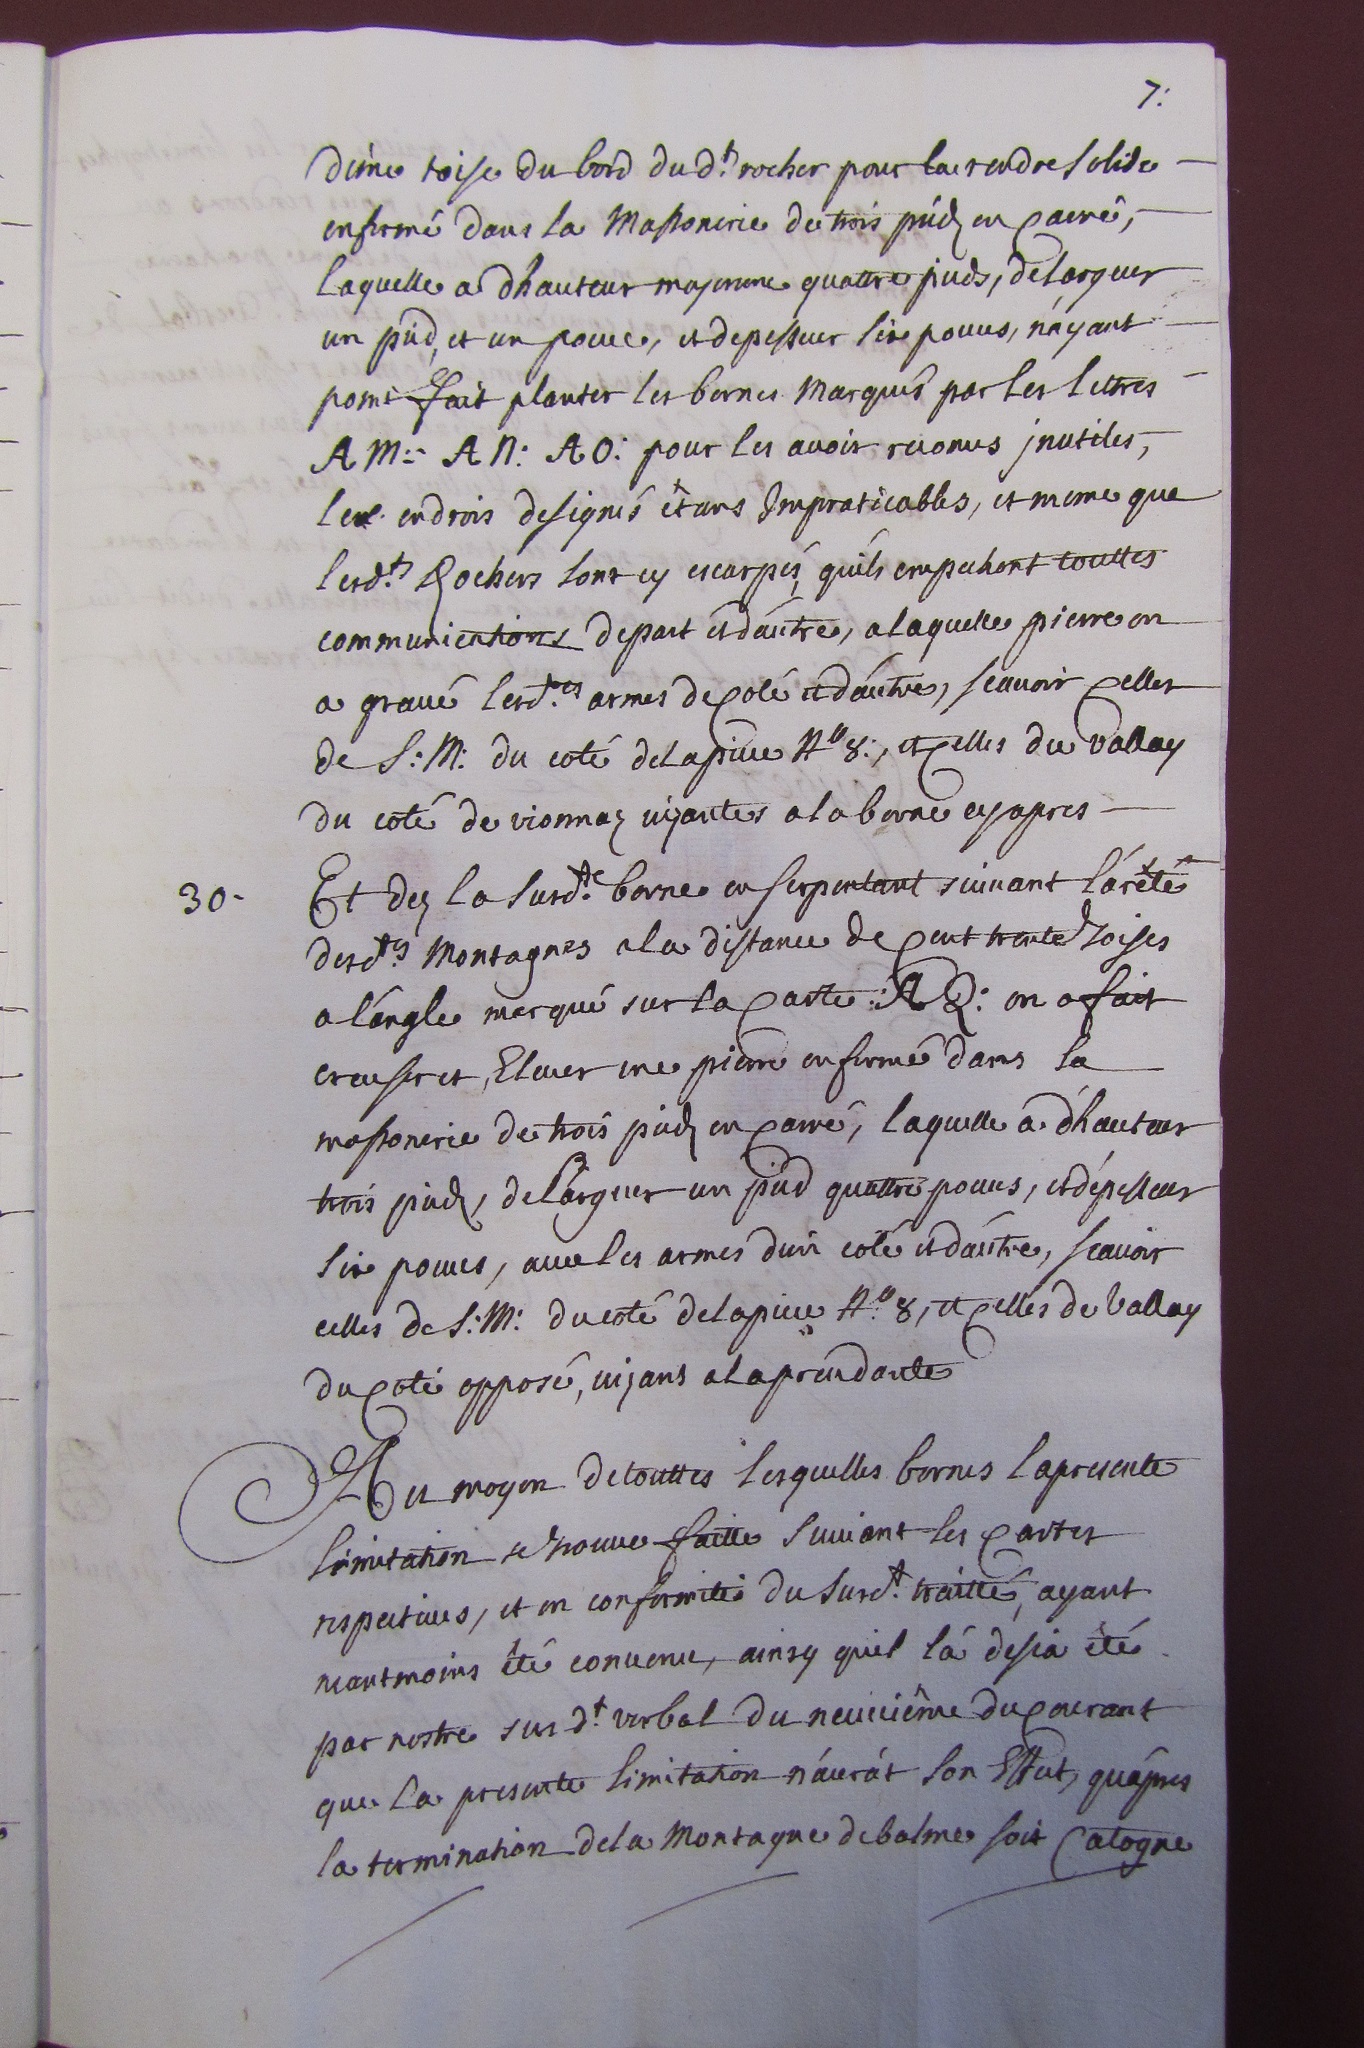 7:
d'une toise du bord du d.t rocher pour la rendre solide
enfermé dans la Massonerie de trois pieds en carré,
laquelle a d'hauteur majeure quattre pieds, de largueur
un pied, et un pouce, et depesseur six pouces, n'ayant
point fait planter les bornes Marqués par les lettres
A M: A N: A O: pour les avoir reconus jnutiles,
les endrois designés êtans Impraticables, et meme que
lesd.ts Rochers sont cy escarpés, qu'ils empechent touttes
communications depart et d'autre, a laquelle pierre on
a gravé lesd.tes armes de coté et d'autre, scavoir celles
de S: M: du coté de la piece N.o 8:, et celles du Vallay
du coté de vionnaz vizantes a la borne cy apres
30- Et dez la surd.te borne en serpentant suivant l'arête
desd.tes Montagnes a la distance de cent trente toises
a l'angle marqué sur la Carte: A Q: on a fait
creuser et, Elever une pierre enfermé dans la
massonerie de trois pieds en carré, laquelle a d'hauteur
trois pieds, de largeur un pied quattre pouces, et dépesseur
six pouces, avec les armes d'un coté et d'autre, scavoir
celles de S: M: du coté de la piece N.o 8, et celles de Vallay
du coté opposé, vizans a la précedante
Au moyen de touttes lesquelles bornes la presente
limitation se trouve faitte suivant les cartes
respectives, et en conformité du surd.t traitté, ayant
neantmoins été convenu, ainsy qu'il l'a desia été
par nostre sus d.t verbal du neuvième du courant
que la presente limitation n'aurat son Effect, qu'apres
la termination de la Montagne de balme soit Catogne